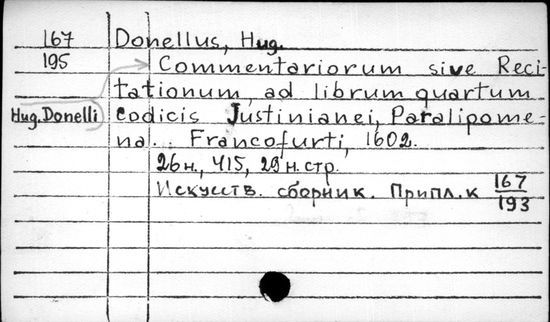 167
195
Donellus, Hug.
Commentariorum sive Reci-
tationum, ad librum quartum
Hug. Donelli
codicis Justinianei, Paralipome-
na.. Francofurti, 1602.
26н., 415, 29н.стр.
Искусств. сборник. Припл. к 167/193